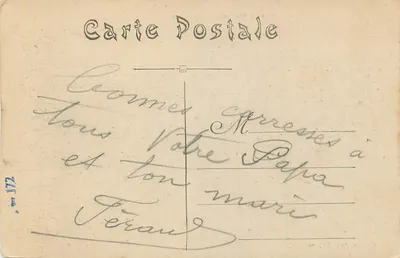 Carte Postale
Bonnes carresses à
tous Votre Papa
et ton mari
Féraud
M
172